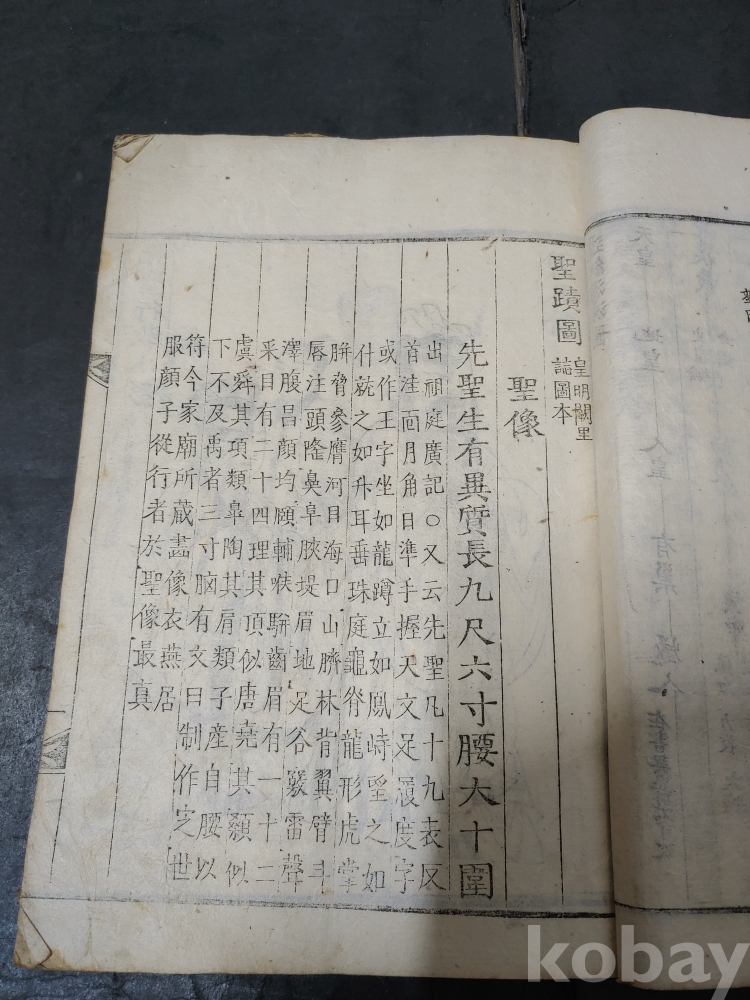 聖蹟圖
皇明闕里
誌圖本
聖像
先聖生有異質長九尺六寸腰大十圍
出祖庭廣記○又云先聖凡十九表反
首洼面月角日準手握天文足履度字
或作王字坐如龍蹲立如鳳峙望之如
什就之如升耳垂珠庭龜脊龍形虎掌
胼脅參膺河目海口山臍林背翼臂斗
唇注頭隆鼻阜脥堤眉地足谷竅雷聲
澤腹昌顏均頤輔喉駢齒眉有一十二
采目有二十四理其頂似唐堯其顙似
虞舜其項類皐陶其肩類子產自腰以
下不及禹者三寸胸有文曰制作定世
符今家廟所藏畵像衣燕居
服顏子從行者於聖像最真
kobay